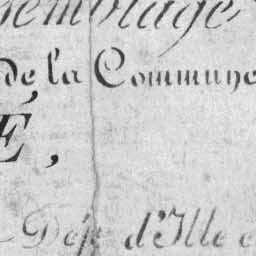 semblage
de la Commune
É,
Dép. d'Ille e